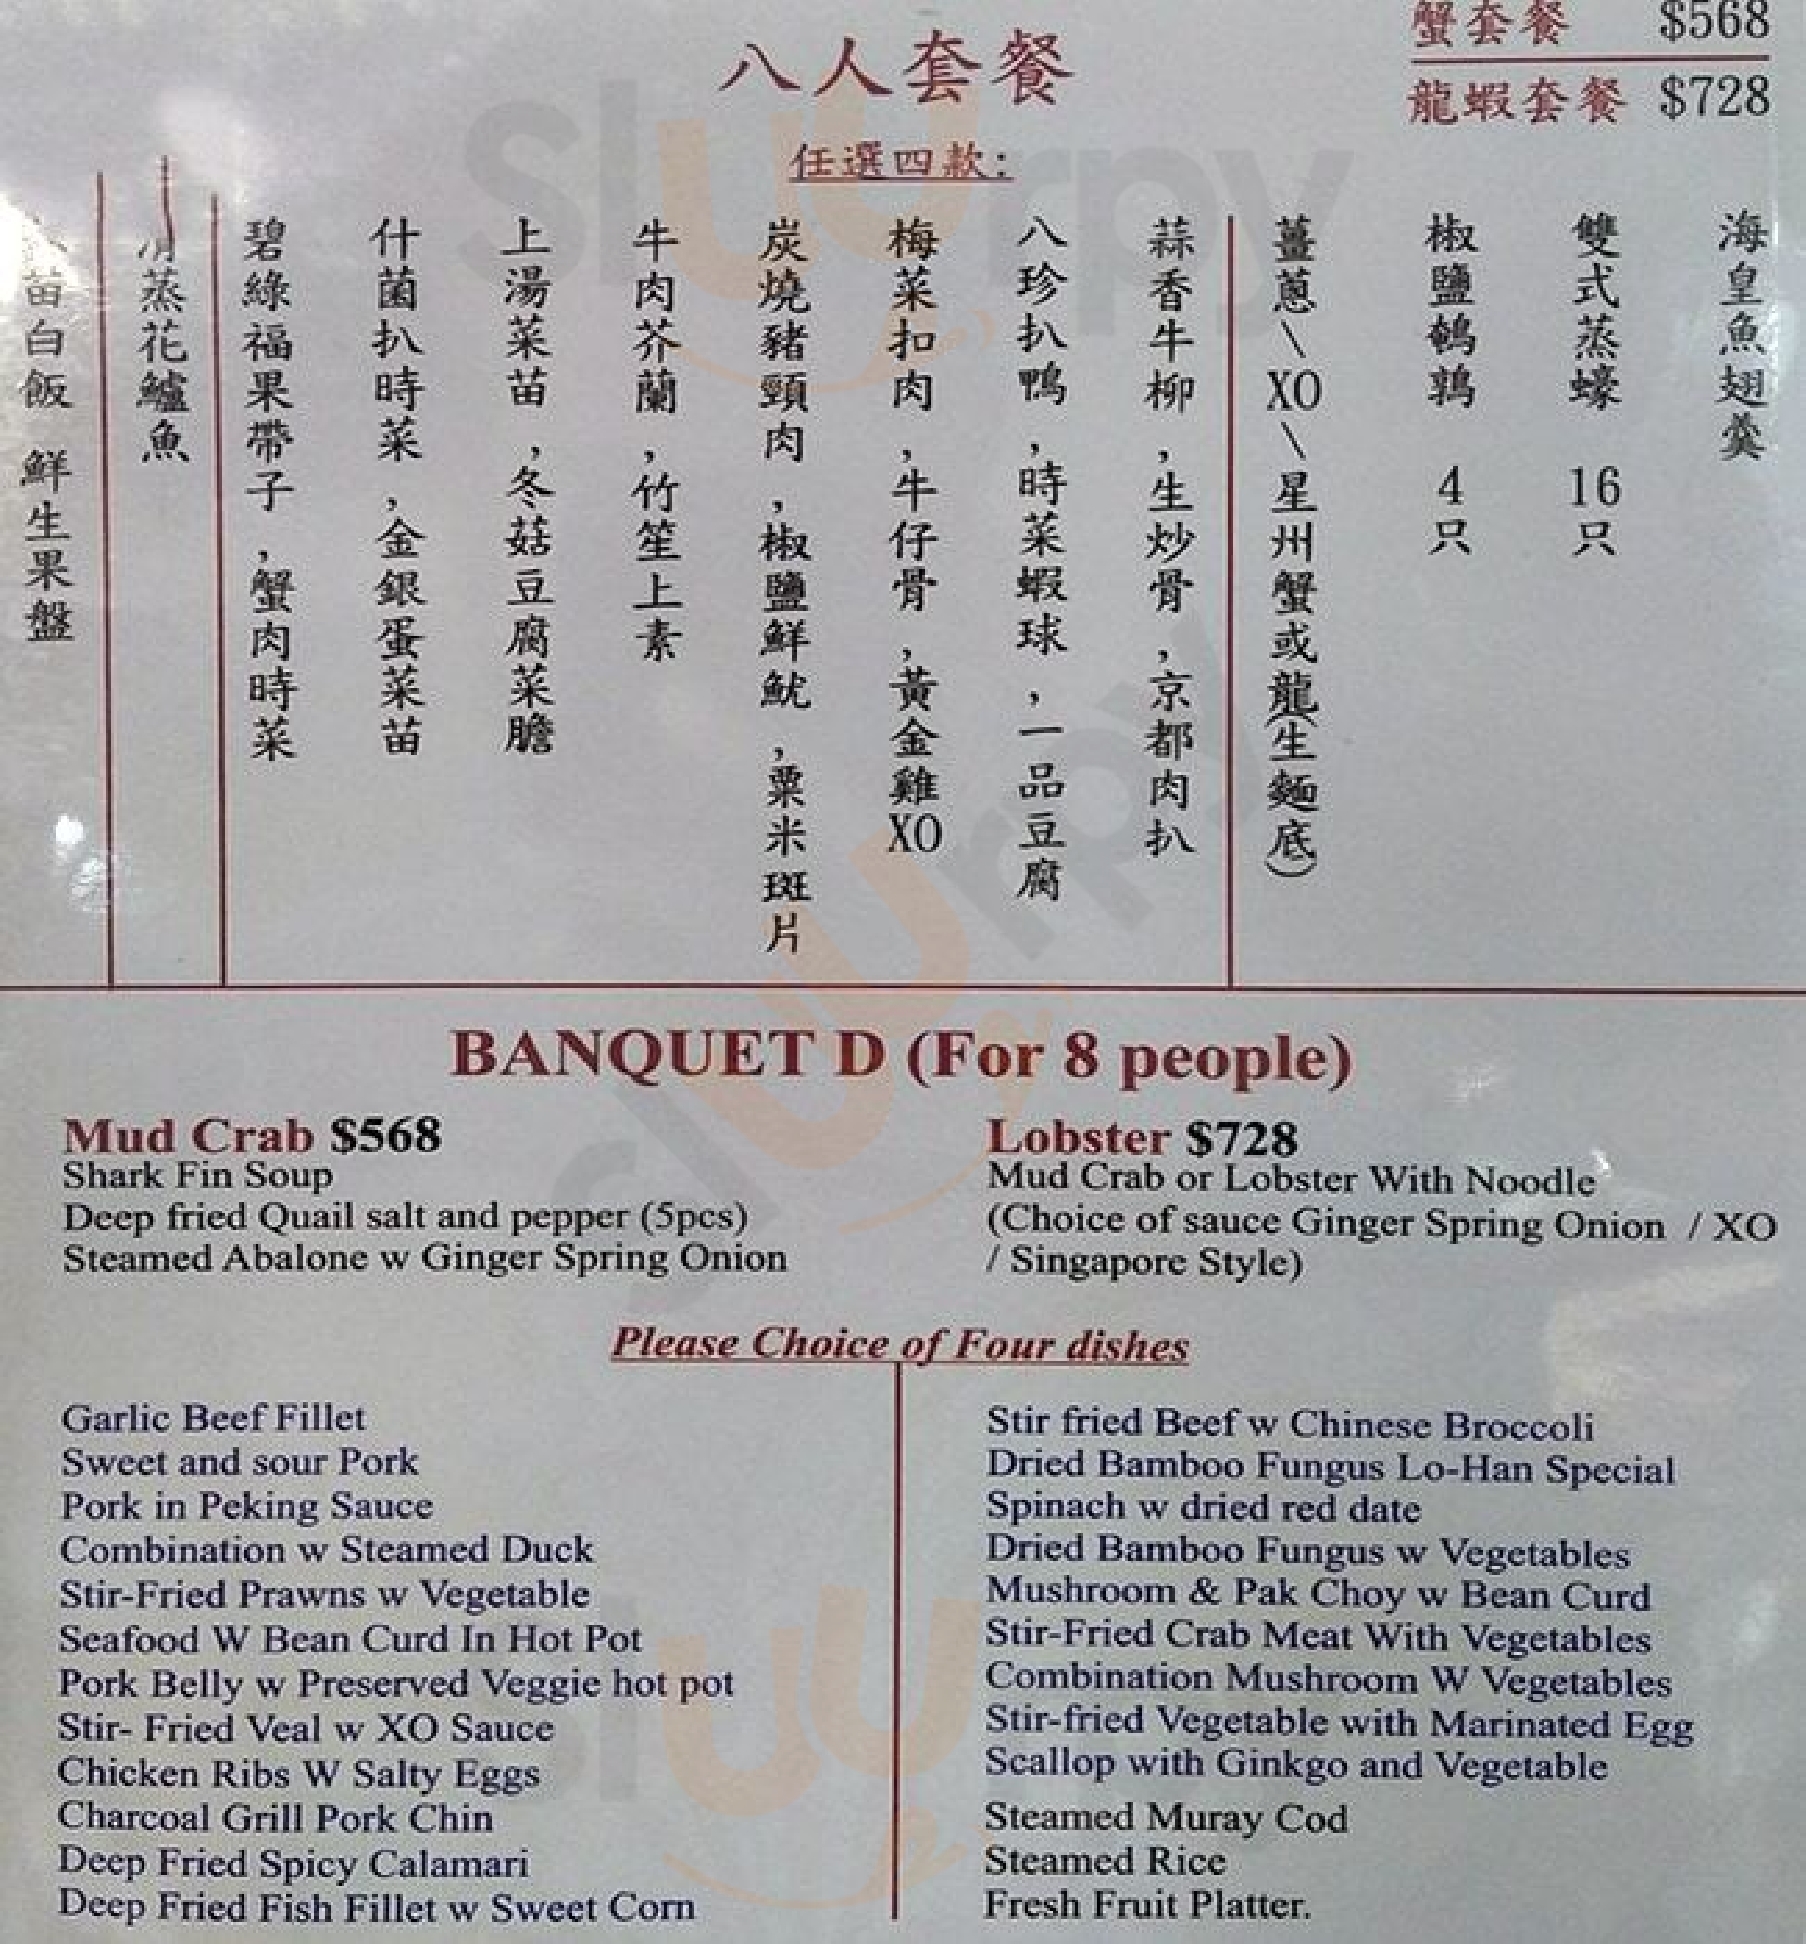 八人套餐
蟹套餐 $568
龍蝦套餐 $728
任選四款:
海皇魚翅羹
雙式蒸蠔 16只
椒鹽鵪鶉 4只
薑蔥\XO\星州蟹或龍(生麵底)
蒜香牛柳,生炒骨,京都肉扒
八珍扒鴨,時菜蝦球,一品豆腐
梅菜扣肉,牛仔骨,黃金雞XO
炭燒豬頸肉,椒鹽鮮魷,粟米斑片
牛肉芥蘭,竹笙上素
上湯菜苗,冬菇豆腐菜膽
什菌扒時菜,金銀蛋菜苗
碧綠福果帶子,蟹肉時菜
清蒸花鱸魚
苗白飯 鮮生果盤
BANQUET D (For 8 people)
Mud Crab $568
Shark Fin Soup
Deep fried Quail salt and pepper (5pcs)
Steamed Abalone w Ginger Spring Onion
Lobster $728
Mud Crab or Lobster With Noodle
(Choice of sauce Ginger Spring Onion / XO
/ Singapore Style)
Please Choice of Four dishes
Garlic Beef Fillet
Sweet and sour Pork
Pork in Peking Sauce
Combination w Steamed Duck
Stir-Fried Prawns w Vegetable
Seafood W Bean Curd In Hot Pot
Pork Belly w Preserved Veggie hot pot
Stir- Fried Veal w XO Sauce
Chicken Ribs W Salty Eggs
Charcoal Grill Pork Chin
Deep Fried Spicy Calamari
Deep Fried Fish Fillet w Sweet Corn
Stir fried Beef w Chinese Broccoli
Dried Bamboo Fungus Lo-Han Special
Spinach w dried red date
Dried Bamboo Fungus w Vegetables
Mushroom & Pak Choy w Bean Curd
Stir-Fried Crab Meat With Vegetables
Combination Mushroom W Vegetables
Stir-fried Vegetable with Marinated Egg
Scallop with Ginkgo and Vegetable
Steamed Muray Cod
Steamed Rice
Fresh Fruit Platter.
Sluurpy
sluurpy
sluurpy